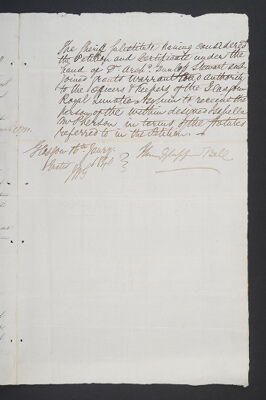 The Sheriff Substitute having considered
the Petition and Certificate under the
hand of Dr Archd. Dunlop Stewart sub
joined grants Warrant & authority
to the Officers & Keepers of the Glasgow
Royal Lunatic Asylum to receive the
person of the within designed Isabella
McPherson in terms of the Statutes
referred to in the Petition.
Glasgow
Bell